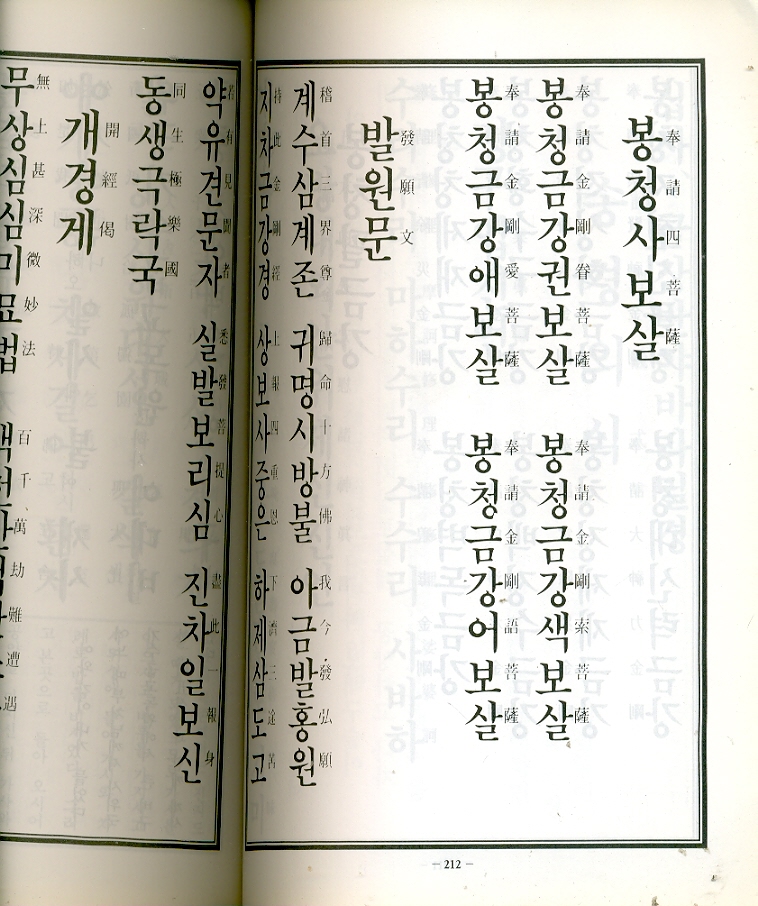 봉청사보살
奉請四菩薩
봉청금강권보살 봉청금강색보살
奉請金剛眷菩薩 奉請金剛索菩薩
봉청금강애보살 봉청금강어보살
奉請金剛愛菩薩 奉請金剛語菩薩
발원문
發願文
계수삼계존 귀명시방불 아금발홍원
稽首三界尊 歸命十方佛 我今發弘願
지차금강경 상보사중은 하제삼도고
持此金剛經 上報四重恩 下濟三途苦
약유견문자 실발보리심 진차일보신
若有見聞者 悉發菩提心 盡此一報身
동생극락국
同生極樂國
개경게
開經偈
무상심심미묘법
無上甚深微妙法 百千萬劫難遭遇
- 212 -